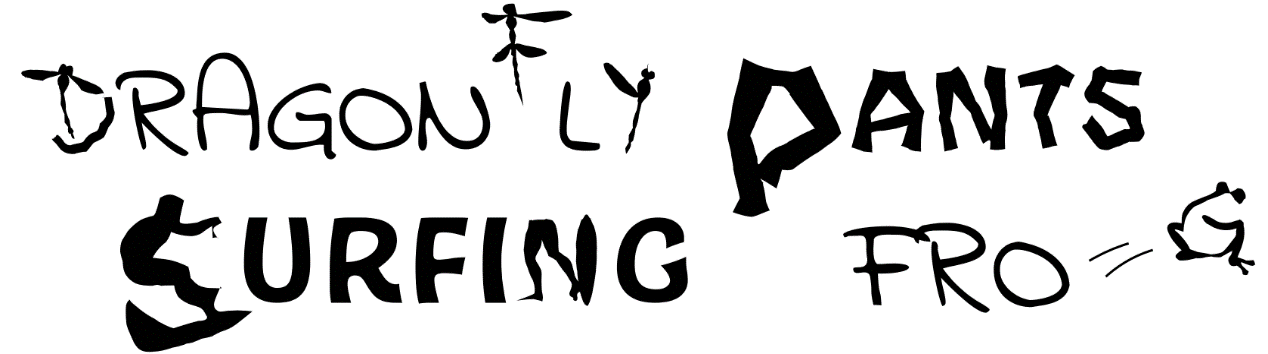 DRAGONFLY PANTS
SURFING FROG